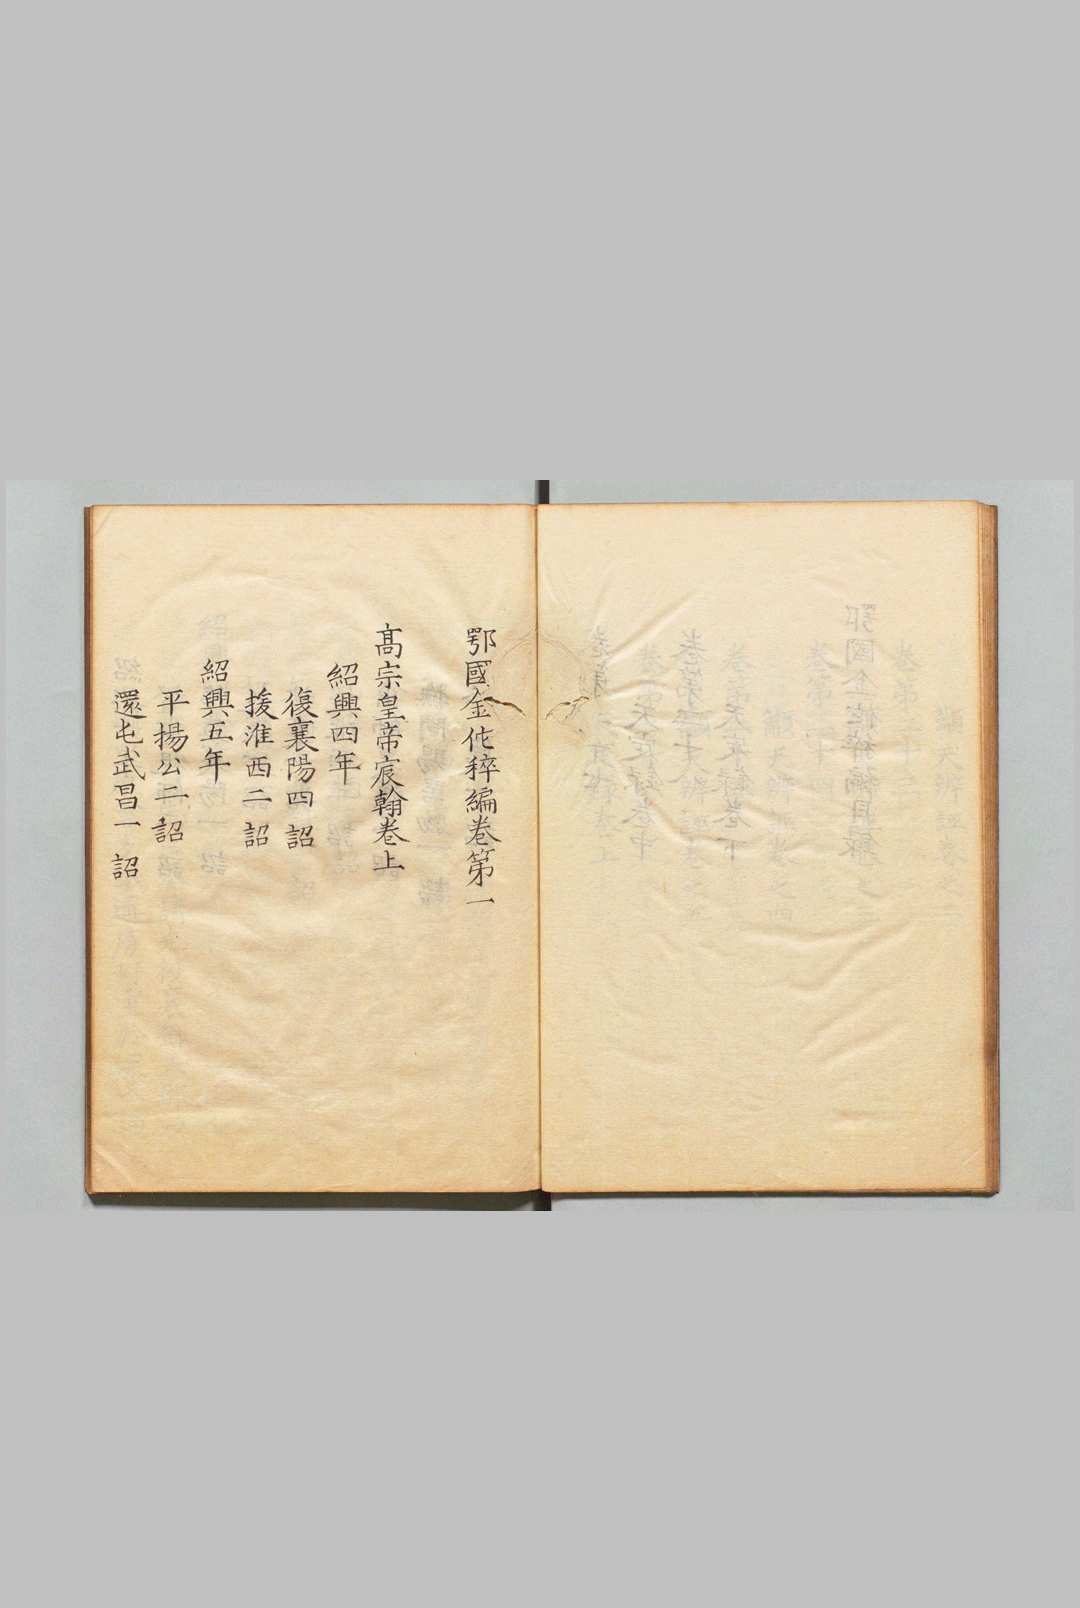 鄂國金佗稡編卷第一
髙宗皇帝宸翰卷上
紹興四年
復襄陽四詔
援淮西二詔
紹興五年
平揚公二詔
還屯武昌一詔